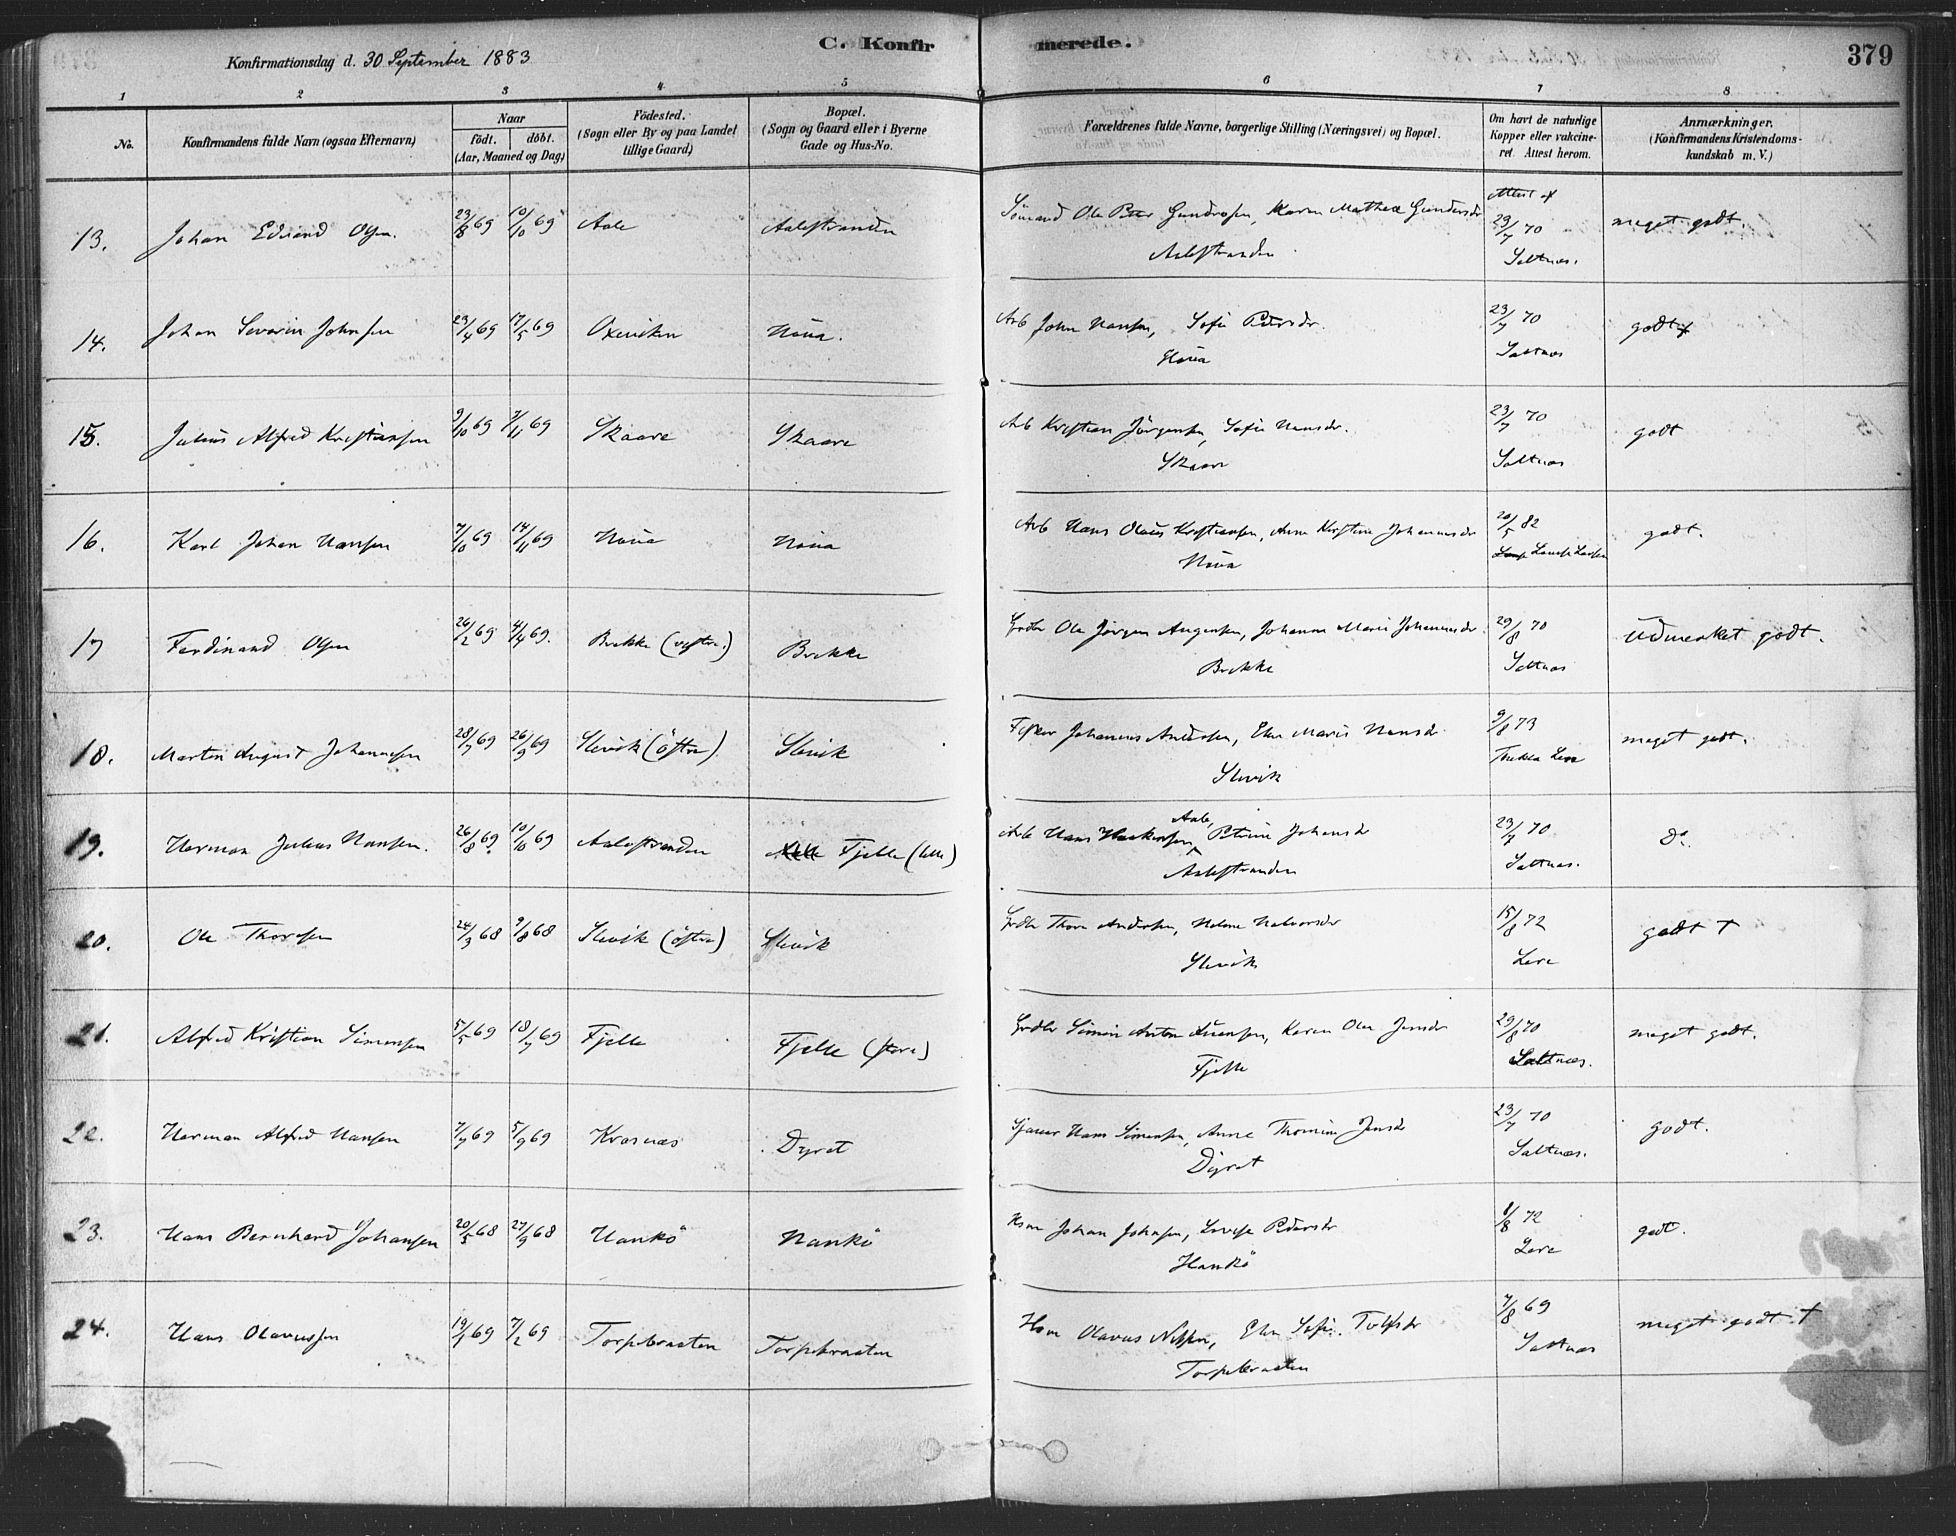 C. Konfirmerede.
379
Konfirmationsdag d. 30 September 1883
1 2 3 4 5 6 7 8
No.
Konfirmandens fulde Navn (ogsaa Efternavn)
Naar
födt. döbt.
(Aar, Maaned og Dag)
Födested.
(Sogn eller By og paa Landet
tillige Gaard)
Bopæl.
(Sogn og Gaard eller i Byerne
Gade og Hus-No.
Forældrenes fulde Navne, borgerlige Stilling (Næringsvei) og Bopæl.
Om havt de naturlige
Kopper eller vakcine-
ret. Attest herom.
Anmærkninger,
(Konfirmandens Kristendoms-
kundskab m. V.)
13. Johan Edvard Olsen. 23/8 69 10/10 69 Aale Aalestranden Sömand Ole Peter Gundersen, Karen Mathea Gundersdr Attest af
Aalestranden 23/7 70 meget godt.
Saltnæs.
14. Johan Severin Johnsen 23/4 69 17/5 69 Oxeviken Höiia. Arb John Hansen, Sofie Pedersdr. 23/7 70 godt
Höiia Saltnæs
15. Julius Alfred Kristiansen 9/10 69 7/11 69 Skaare Skaare Arb Kristian Jörgensen, Sofie Hansdr. 23/7 70 godt
Skaare Saltnæs
16. Karl Johan Hansen 7/10 69 14/11 69 Höiia Höiia Arb Hans Olaus Kristiansen, Anne Kristine Johannesdr 20/5 82 godt.
Höiia Lovise Larsen
17 Ferdinand Olsen 26/2 69 4/4 69. Brekke (vestre.) Brekke Grdbr Ole Jörgen Augensen, Johanne Marie Johannesdr 29/8 70 Udmerket godt.
Brekke Saltnæs
18. Martin August Johannesen 28/7 69 26/9 69 Slevik (östre) Slevik Fisker Johannes Andersen, Elen Marie Hansdr 9/8 73 meget godt.
Slevik Thekla Lere
19. Herman Julius Hansen. 26/8 69. 10/10 69 Aalestranden Fjelle (lille) Arb Hans Haakensen Aale, Petrine Johansdr 23/7 70 Do.
Aalestranden Saltnæs.
20. Ole Thoresen 24/3 68 9/8 68 Slevik (östre) Slevik Grdbr Thore Andersen, Helene Halvorsdr 15/8 72 godt †
Slevik Lere
21. Alfred Kristian Simensen 5/5 69 18/7 69 Fjelle Fjelle (store) Grdbr Simen Anton Evensen, Karen Olea Jensdr 29/8 70 meget godt.
Fjelle Saltnæs.
22. Herman Alfred Hansen 7/7 69 5/9 69 Krosnæs Dyret Hans Simensen, Anne Thomine Jensdr 23/7 70 godt.
Dyret Saltnæs.
23. Hans Bernhard Johansen 20/5 68 27/9 68 Hankö Hankö Hsm Johan Johnsen, Lovise Pedersdr 1/8 72 godt.
Hankö Lere
24. Hans Olavussen 19/1 69 7/2 69 Torpebraaten Torpebraaten Hsm Olavus Nilsen, Elen Sofie 7/8 69 meget godt †
Torpebraaten Saltnæs